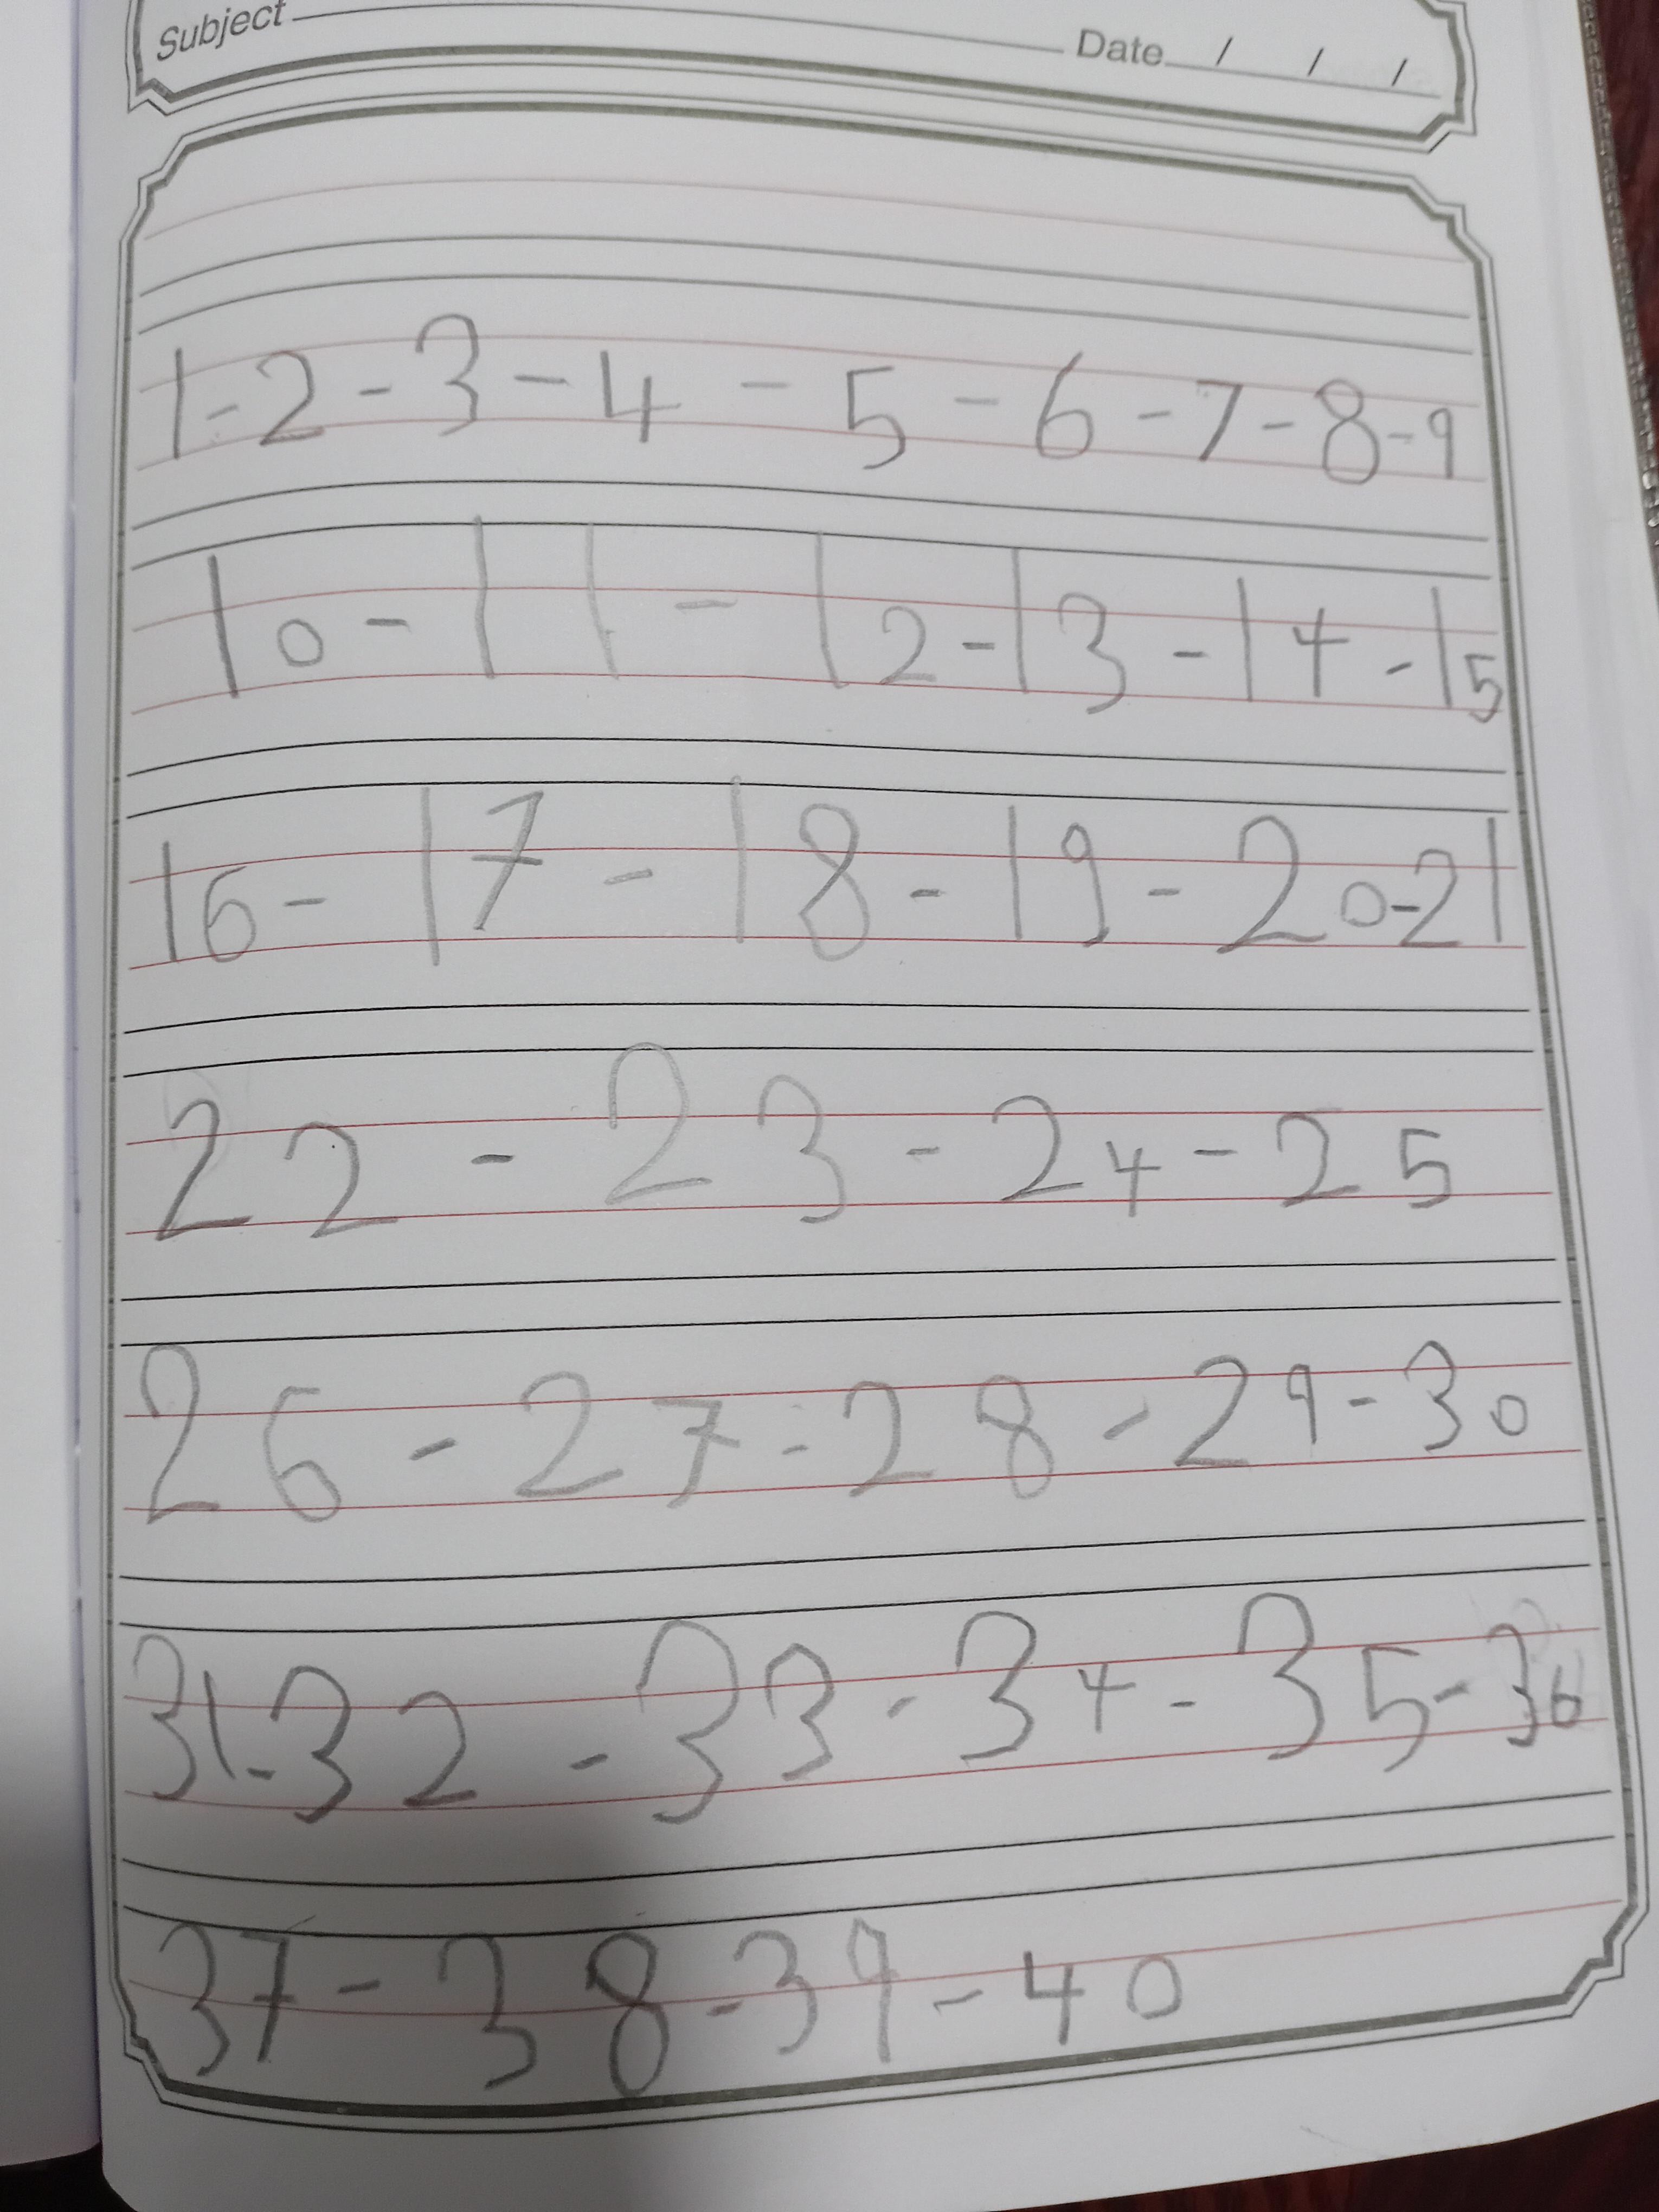 Subject Date / / /
1-2-3-4-5-6-7-8-9
10-11-12-13-14-15
16-17-18-19-20-21
22-23-24-25
26-27-28-29-30
31-32-33-34-35-36
37-38-39-40